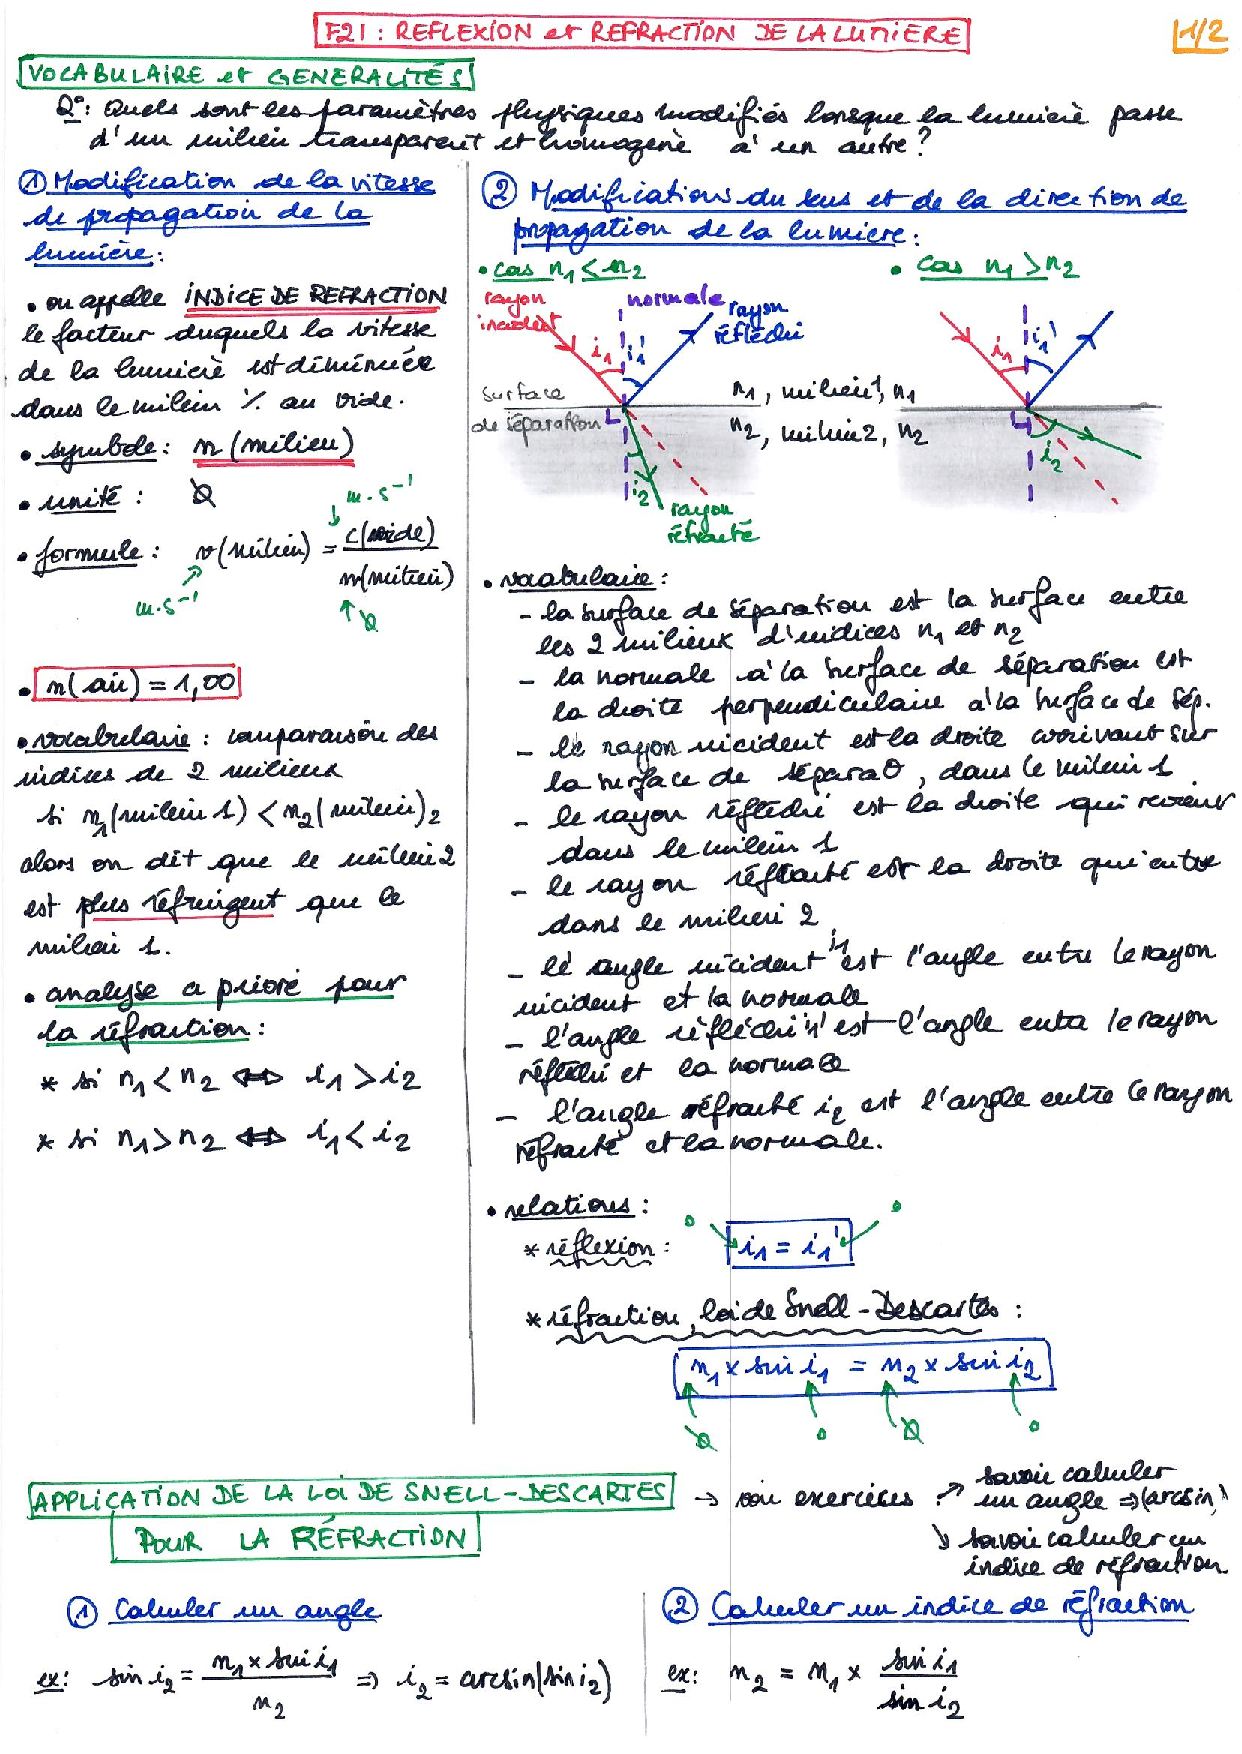 F21 : REFLEXION et REFRACTION DE LA LUMIÈRE
1/2
VOCABULAIRE et GENERALITÉS
Q°: Quels sont les paramètres physiques modifiés lorsque la lumière passe
d'un milieu transparent et homogène à un autre ?
① Modification de la vitesse
de propagation de la
lumière :
• on appelle INDICE DE REFRACTION
le facteur duquels la vitesse
de la lumière est diminuée
dans le milieu % au vide.
• symbole : n (milieu)
• unité : Ø
m.s⁻¹
• formule : v(milieu) = c(vide) / n(milieu)
m.s⁻¹
Ø
• n(air) = 1,00
• vocabulaire : comparaison des
indices de 2 milieux
si n₁(milieu 1) < n₂(milieu)₂
alors on dit que le milieu 2
est plus réfringent que le
milieu 1.
• analyse a priori pour
la réfraction :
* si n₁ < n₂ ⇔ i₁ > i₂
* si n₁ > n₂ ⇔ i₁ < i₂
② Modifications du sens et de la direction de
propagation de la lumière :
• cas n₁ < n₂
• cas n₁ > n₂
rayon
incident
normale
rayon
réfléchi
i₁
i₁'
i₁
i₁'
surface
de séparation
n₁, milieu 1, n₁
n₂, milieu 2, n₂
i₂
i₂
rayon
réfracté
• vocabulaire :
- la surface de séparation est la surface entre
les 2 milieux d'indices n₁ et n₂
- la normale à la surface de séparation est
la droite perpendiculaire à la surface de sép.
- le rayon incident est la droite arrivant sur
la surface de séparaθ, dans le milieu 1
- le rayon réfléchi est la droite qui revient
dans le milieu 1
- le rayon réfracté est la droite qui entre
dans le milieu 2
- lé angle incident i₁ est l'angle entre le rayon
incident et la normale
- l'angle réfléchi i₁' est l'angle entre le rayon
réfléchi et la normale
- l'angle réfracté i₂ est l'angle entre le rayon
réfracté et la normale.
• relations :
* réflexion : i₁ = i₁'
°
°
* réfraction, loi de Snell-Descartes :
n₁ x sin i₁ = n₂ x sin i₂
Ø ° Ø °
APPLICATION DE LA LOI DE SNELL-DESCARTES
POUR LA RÉFRACTION
→ voir exercices
↗ savoir calculer
un angle ⇒ (arcsin)
↘ savoir calculer un
indice de réfraction
① Calculer un angle
ex: sin i₂ = n₁ x sin i₁ / n₂ ⇒ i₂ = arcsin(sin i₂)
② Calculer un indice de réfraction
ex: n₂ = n₁ x sin i₁ / sin i₂